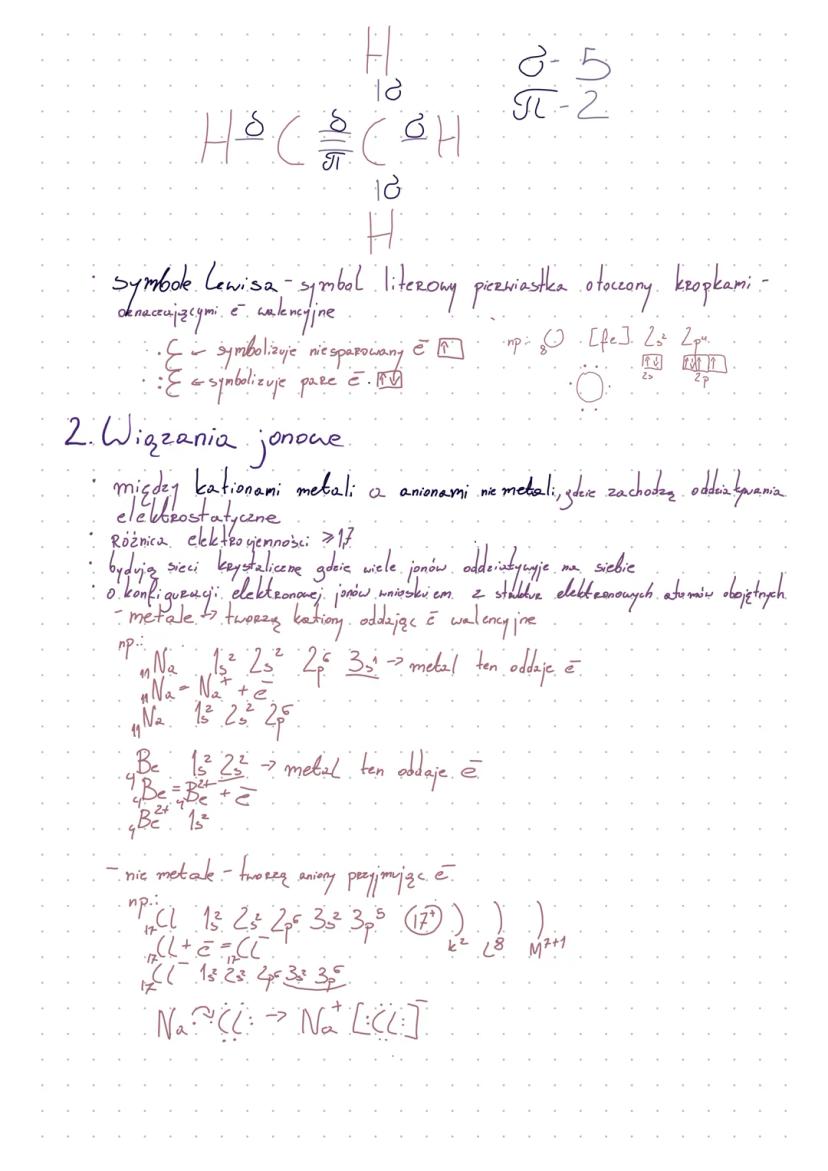 H
δ- 5
π - 2
|δ
H δ C δ π C δ H
|δ
H
· symbole Lewisa - symbol literowy pierwiastka otoczony kropkami -
oznaczającymi e⁻ walencyjne
· E ← symbolizuje niesparowany e⁻ ↑
np: ₈O [He] 2s² 2p⁴
: E ← symbolizuje parę e⁻ ↑↓
↑↓ ↑↓ ↑ ↑
2s 2p
O
2. Wiązania jonowe
· między kationami metali a anionami nie metali, gdzie zachodzą oddziaływania
elektrostatyczne
· Różnica elektroujemności ≥ 1,7
· budują sieci krystaliczne gdzie wiele jonów oddziaływuje na siebie
· o konfiguracji elektronowej jonów wnioskujem z struktur elektronowych atomów obojętnych
- metale → tworzą kationy oddając e⁻ walencyjne
np.:
₁₁Na 1s² 2s² 2p⁶ 3s¹ → metal ten oddaje e⁻
₁₁Na = Na⁺ + e⁻
₁₁Na 1s² 2s² 2p⁶
₄Be 1s² 2s² → metal ten oddaje e⁻
₄Be = ₄Be²⁺ + e⁻
₄Be²⁺ 1s²
- nie metale - tworzą aniony przyjmując e⁻
np.:
₁₇Cl 1s² 2s² 2p⁶ 3s² 3p⁵ (17⁺) ) ) )
K² L⁸ M²⁺¹
₁₇Cl + e⁻ = ₁₇Cl⁻
₁₇Cl⁻ 1s² 2s² 2p⁶ 3s² 3p⁶
Na · Cl: → Na⁺ [:Cl:]⁻